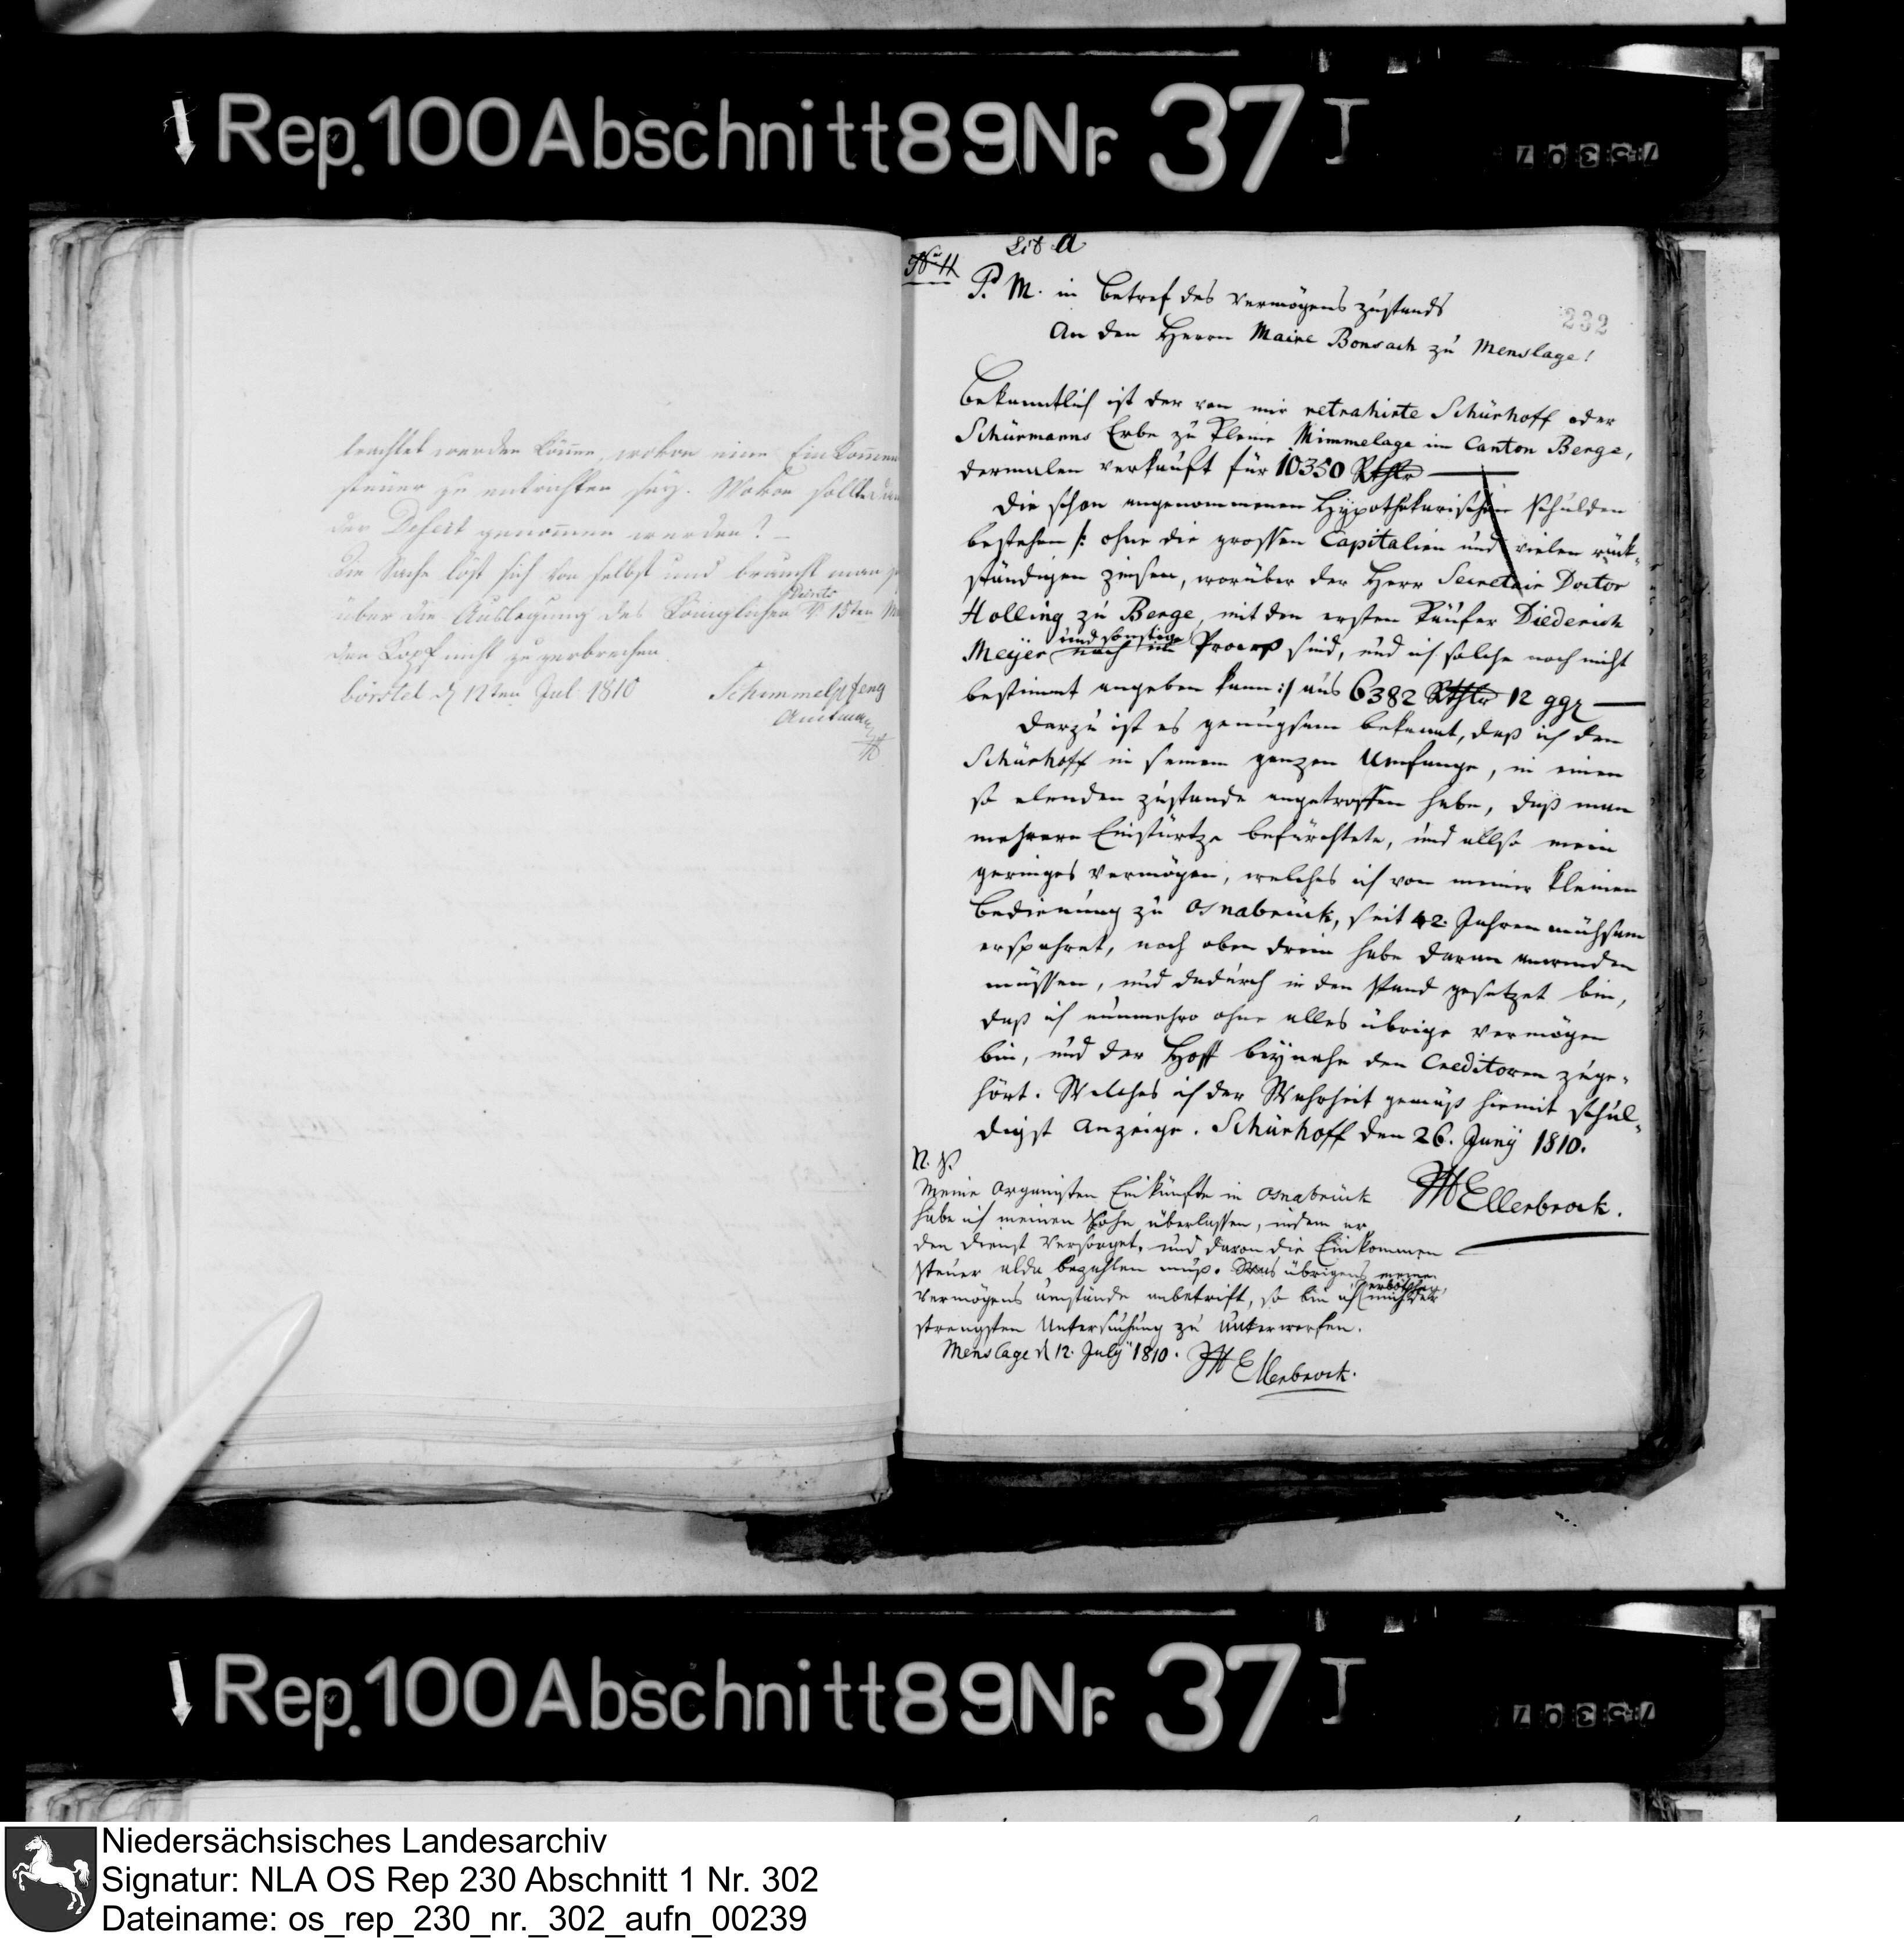 Rep. 100 Abschnitt 89 Nr. 37 I
75307
leachtet werden können, wovon eine Einkommen
steuer zu entrichten sey. Wovon sollte den
der Defect genommen werden? –
Die Sache löst sich von selbst und braucht man
über die Auslegung des Königlichen Decrets V. 15ten
den Kopf nicht zu zerbrechen.
börstel d 12ten Jul. 1810 Schimmelpfeng
Amtmann
No 11
Lit. a
232
P. M. in betref des Vermögens zustands
An den Herrn Maire Bonsack zu Menslage!
Bekanntlich ist der von mir retrahirte Schürhoff oder
Schürmanns Erbe zu kleine Mimmelage im Canton Berge,
dermalen verkauft für 10350 Rthlr
Die schon angenommenen Hÿpothekarischen Schulden
bestehen /: ohne die grossen Capitalien und vielen rück-
ständigen zinsen, worüber der Herr Secretair Doctor
Holling zu Berge, mit den ersten Käufer Diederich
Meÿer und sonstige noch im Proceß sind, und ich solche noch nicht
bestimmt angeben kann :/ aus 6382 Rthlr 12 ggr
Darzu ist es genugsam bekannt, daß ich den
Schürhoff in seinem ganzen Umfange, in einen
so elenden zustande angetroffen habe, daß man
mehrere Einstürtze befürchtete, und allso mein
geringes Vermögen, welches ich von meiner kleinen
bedienung zu Osnabrück, seit 42. Jahren mühsam
erspahret, noch oben drein habe daran anwenden
müssen, und dadurch in den Stand gesetzet bin,
daß ich nunmehro ohne alles übrige Vermögen
bin, und der Hoff beÿnahe den Creditoren zuge-
hört. Welches ich der Wahrheit gemäß hiemit schul-
digst Anzeige. Schürhoff den 26. Junÿ 1810.
JH Ellerbrock.
N. S.
Meine Organisten Einkünfte in Osnabrück
habe ich meinen Sohn überlassen, indem er
den dienst Versorget, und davon die Einkommen
steuer alda bezahlen muß. Was übrigens meine
Vermögens umstände anbetrift, so bin ich erböthig, mich der
strengsten Untersuchung zu unterwerfen.
Menslage d 12. Julÿ 1810. JH Ellerbrock.
Rep. 100 Abschnitt 89 Nr. 37 I
75307
Niedersächsisches Landesarchiv
Signatur: NLA OS Rep 230 Abschnitt 1 Nr. 302
Dateiname: os_rep_230_nr._302_aufn_00239